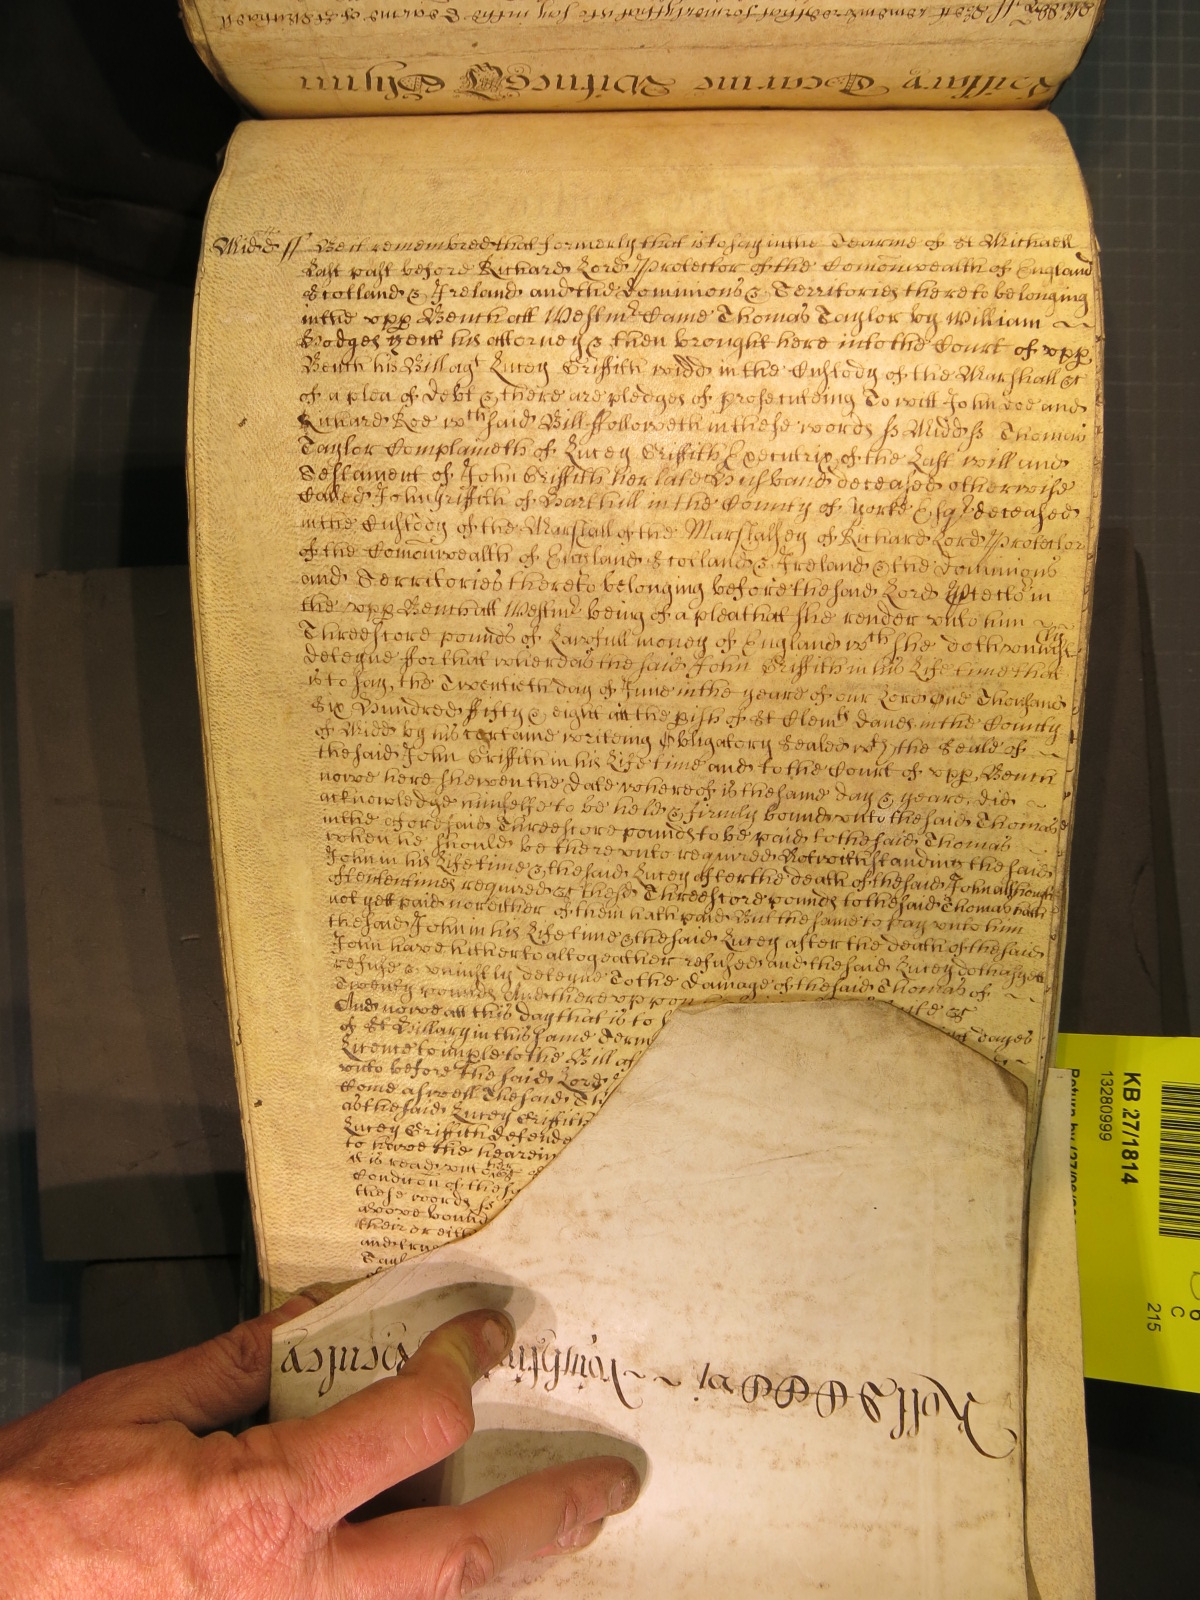 Hillary Tearme Witnes Glynn
Midd ss Be it remembred that formerly that is to say in the Tearme of St Michaell
Last past before Richard Lord Protector of the Comonwealth of England
Scotland & Ireland and the Dominions & Territories thereto belonging
in the upp Bench att Westmr Came Thomas Taylor by William
Hodges gent his attorney & then brought here into the Court of upp
Bench his Bill agt Lucey Griffith widd in the Custody of the Marshall &c
of a plea of Debt & there are pledges of prosecuteing To witt John Doe and
Richard Roe wch said Bill ffolloweth in these words ss Midd ss Thomas
Taylor Complaineth of Lucey Griffith Executrix of the Last will and
Testament of John Griffith her late Husband deceased otherwise
Called John Griffith of in the County of Yorke Esqr deceased
in the Custody of the Marshall of the Marshalsey of Richard Lord Protector
of the Comonwealth of England Scotland & Ireland & the Dominions
and Territories thereto belonging before the said Lord Ptector in
the upp Bench att Westmr being of a plea that she render unto him
Threescore pounds of Lawfull money of England wch she doth uniustly
deteyne ffor that whereas the said John Griffith in his Life time that
is to say, the Twentieth day of June in the yeare of our Lord One Thousand
Six Hundred fifty & eight att the pish of St Clemts Danes in the County
of Midd by his certaine writeing Obligatory Sealed wth the Seale of
the said John Griffith in his Life time and to the Court of upp Bench
nowe here shewen the Date whereof is the same day & yeare, did
acknowledge himselfe to be held & firmly bound unto the said Thomas
in the aforesaid Threescore pounds to be paid to the said Thomas
when he should be there unto required Notwithstanding the said
John in his Life time & the said Lucey after the death of the said John although
oftentimes required &c these Threescore pounds to the said Thomas have
not yett paid nor either of them hath paid But the same to pay unto him
the said John in his Life time & the said Lucey after the death of the said
John have hitherto altogeather refused and the said Lucey doth as yet
refuse & uniustly deteyne To the Damage of the said Thomas of
Twenty pounds And there uppon
And nowe att this day that is to
of St Hillary in this same Terme
Licence to imple to the Bill af
unto before the said Lord
Come aswell The said Th
as the said Lucey Griffith
Lucey Griffith Defende
to have the hearein
it is read unto
Condicon of the
these words ss
above bound
their or eith
and
Tayl
Roll
KB 27/1814
13280999
C
215